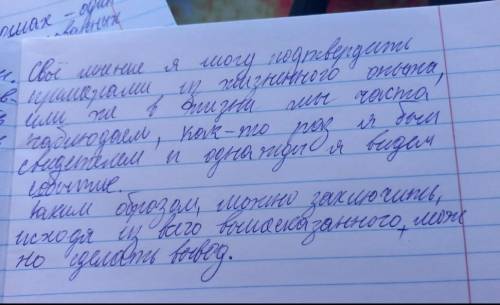 ошах - один
Своё мнение я могу подтвердить
примерами из жизненного опыта,
или же в жизни мы часто
наблюдаем, как-то раз я был
свидетелем и однажды я видел
событие.
Таким образом, можно заключить,
исходя из всего вышесказанного, мож
но сделать вывод.